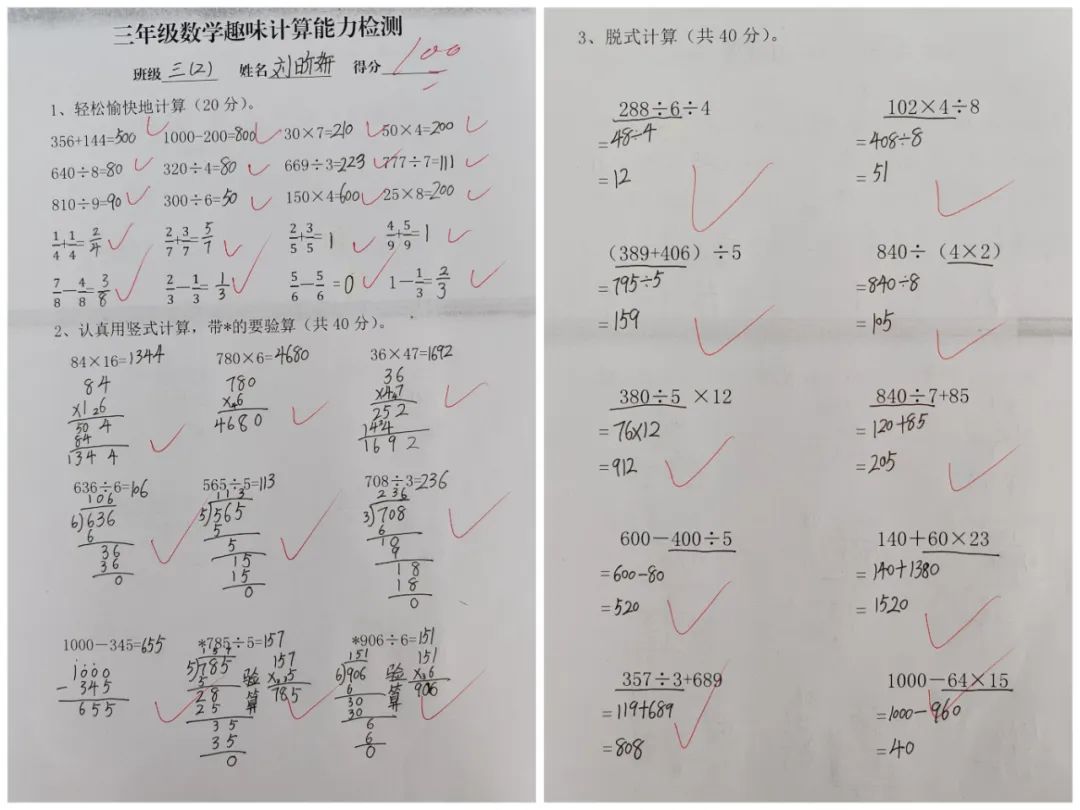 三年级数学趣味计算能力检测
班级 三(2) 姓名 刘昕妍 得分 100
1、轻松愉快地计算（20 分）。
356+144=500 1000-200=800 30×7=210 50×4=200
640÷8=80 320÷4=80 669÷3=223 777÷7=111
810÷9=90 300÷6=50 150×4=600 25×8=200
1/4+1/4=2/4 2/7+3/7=5/7 2/5+3/5=1 4/9+5/9=1
7/8-4/8=3/8 2/3-1/3=1/3 5/6-5/6=0 1-1/3=2/3
2、认真用竖式计算，带*的要验算（共 40 分）。
84×16=1344 780×6=4680 36×47=1692
84 780 36
×126 ×46 ×447
504 4680 252
84 144
1344 1692
636÷6=106 565÷5=113 708÷3=236
106 113 236
6)636 5)565 3)708
6 5 6
36 5 10
36 5 9
0 15 18
15 18
0 0
1000-345=655 *785÷5=157 *906÷6=151
1000 157 151
- 345 5)785 6)906
655 5 6
28 30
25 30
35 6
35 6
0 0
验算 157 ×5 785
验算 151 ×6 906
3、脱式计算（共 40 分）。
288÷6÷4 102×4÷8
=48÷4 =408÷8
=12 =51
（389+406）÷5 840÷（4×2）
=795÷5 =840÷8
=159 =105
380÷5 ×12 840÷7+85
=76×12 =120+85
=912 =205
600-400÷5 140+60×23
=600-80 =140+1380
=520 =1520
357÷3+689 1000-64×15
=119+689 =1000-960
=808 =40